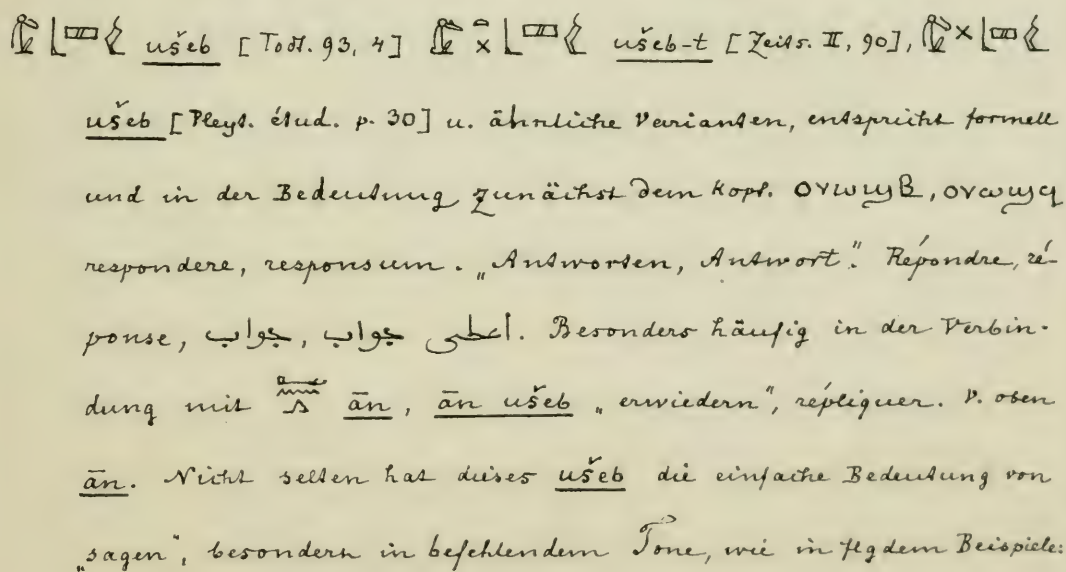 ušeb [Todt. 93, 4] ušeb-t [Zeits. II, 90],
ušeb [Pleyt. étud. p. 30] u. ähnliche Varianten, entspricht formell
und in der Bedeutung zunächst dem kopt. ⲟⲩⲱϣⲃ, ⲟⲩⲱϣϥ
respondere, responsum. „Antworten, Antwort“. Répondre, ré-
ponse, جواب, أعطى جواب. Besonders häufig in der Verbin-
dung mit ān, ān ušeb „erwiedern“, répliquer. v. oben
ān. Nicht selten hat dieses ušeb die einfache Bedeutung von
„sagen“, besonders in befehlendem Tone, wie in flgdem Beispiele: